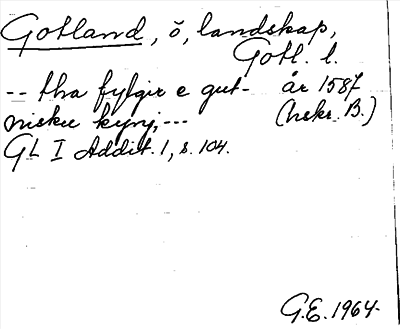 Gotland, ö, landskap,
Gotl. l.
-- tha fylgir e gut- år 1587
nisku kyni, --- (hskr. B.)
GL I Addit. 1, s. 104.
G.E. 1964.